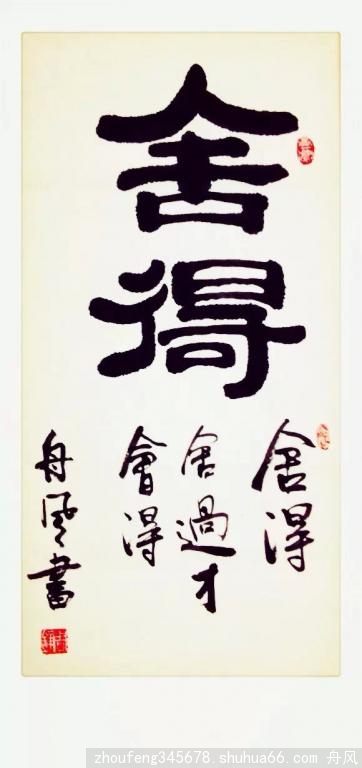 舍
得
舍得
舍過才
會得
舟風書
zhoufeng345678.shuhua66.com 舟风